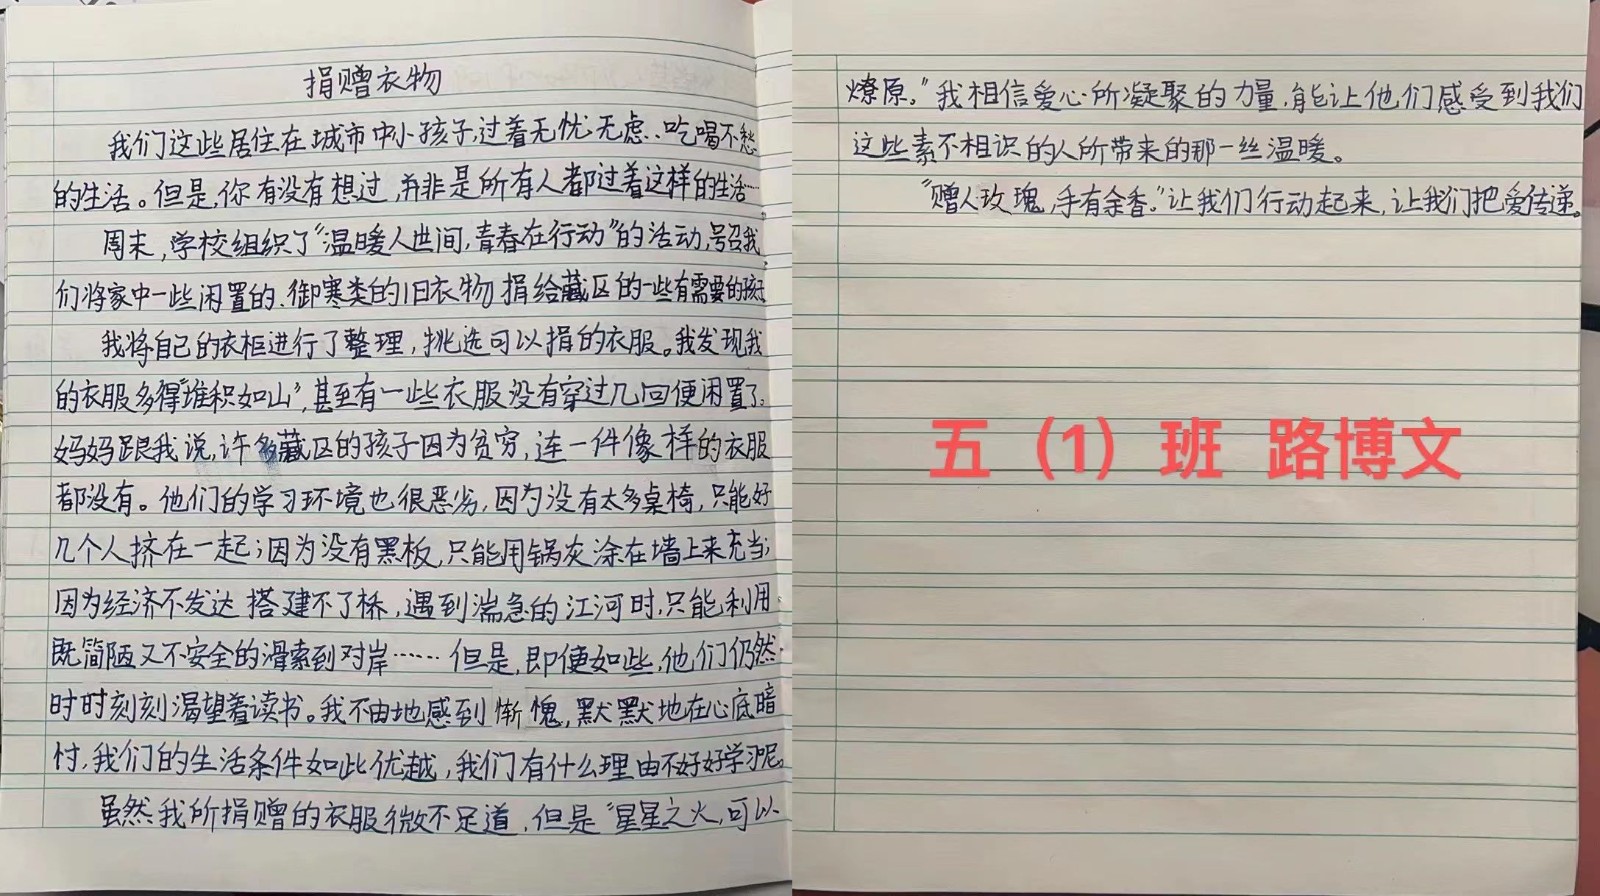 捐赠衣物
我们这些居住在城市中小孩子,过着无忧无虑、吃喝不愁
的生活。但是,你有没有想过,并非是所有人都过着这样的生活……
周末,学校组织了“温暖人世间,青春在行动”的活动,号召我
们将家中一些闲置的、御寒类的旧衣物捐给藏区的一些有需要的孩子。
我将自己的衣柜进行了整理,挑选可以捐的衣服。我发现我
的衣服多得“堆积如山”,甚至有一些衣服没有穿过几回便闲置了。
妈妈跟我说,许多藏区的孩子因为贫穷,连一件像样的衣服
都没有。他们的学习环境也很恶劣,因为没有太多桌椅,只能好
几个人挤在一起;因为没有黑板,只能用锅灰涂在墙上来充当;
因为经济不发达搭建不了桥,遇到湍急的江河时,只能利用
既简陋又不安全的滑索到对岸……但是,即使如些,他们仍然
时时刻刻渴望着读书。我不由地感到惭愧,默默地在心底暗
忖,我们的生活条件如此优越,我们有什么理由不好好学习呢。
虽然我所捐赠的衣服微不足道,但是“星星之火,可以
燎原。”我相信爱心所凝聚的力量,能让他们感受到我们
这些素不相识的人所带来的那一丝温暖。
“赠人玫瑰,手有余香。”让我们行动起来,让我们把爱传递。
五（1）班 路博文